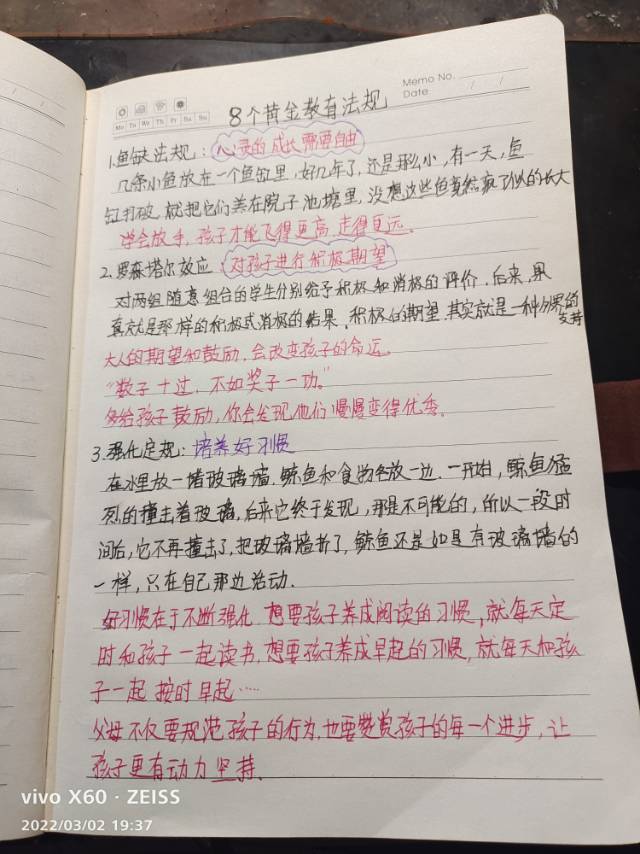 Memo No.
Date / /
Mo Tu We Th Fr Sa Su
8个黄金教育法规
1.鱼缸法规：心灵的成长需要自由
几条小鱼放在一个鱼缸里，好几年了，还是那么小，有一天，鱼
缸打破，就把它们养在院子池塘里，没想这些鱼竟然疯了似的长大
学会放手，孩子才能飞得更高，走得更远。
2.罗森塔尔效应 对孩子进行积极期望
对两组随意组合的学生分别给予积极和消极的评价，后来，果
真就是那样的积极或消极的结果，积极的期望，其实就是一种外界的
支持
大人的期望和鼓励，会改变孩子的命运。
“数子十过，不如奖子一功。”
多给孩子鼓励，你会发现他们慢慢变得优秀。
3.强化定规：培养好习惯
在水里放一堵玻璃墙，鲸鱼和食物各放一边，一开始，鲸鱼猛
烈的撞击着玻璃，后来它终于发现，那是不可能的，所以一段时
间后，它不再撞击了，把玻璃墙拆了，鲸鱼还是如是有玻璃墙的
一样，只在自己那边活动．
好习惯在于不断强化，想要孩子养成阅读的习惯，就每天定
时和孩子一起读书，想要孩子养成早起的习惯，就每天和孩
子一起按时早起……
父母不仅要规范孩子的行为，也要赞赏孩子的每一个进步，让
孩子更有动力坚持．
vivo X60 · ZEISS
2022/03/02 19:37